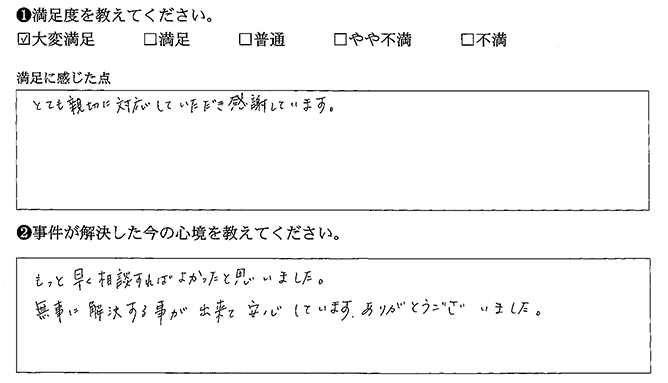 ❶満足度を教えてください。
☑大変満足 □満足 □普通 □やや不満 □不満
満足に感じた点
とても親切に対応していただき感謝しています。
❷事件が解決した今の心境を教えてください。
もっと早く相談すればよかったと思いました。
無事に解決する事が出来て安心しています。ありがとうございました。